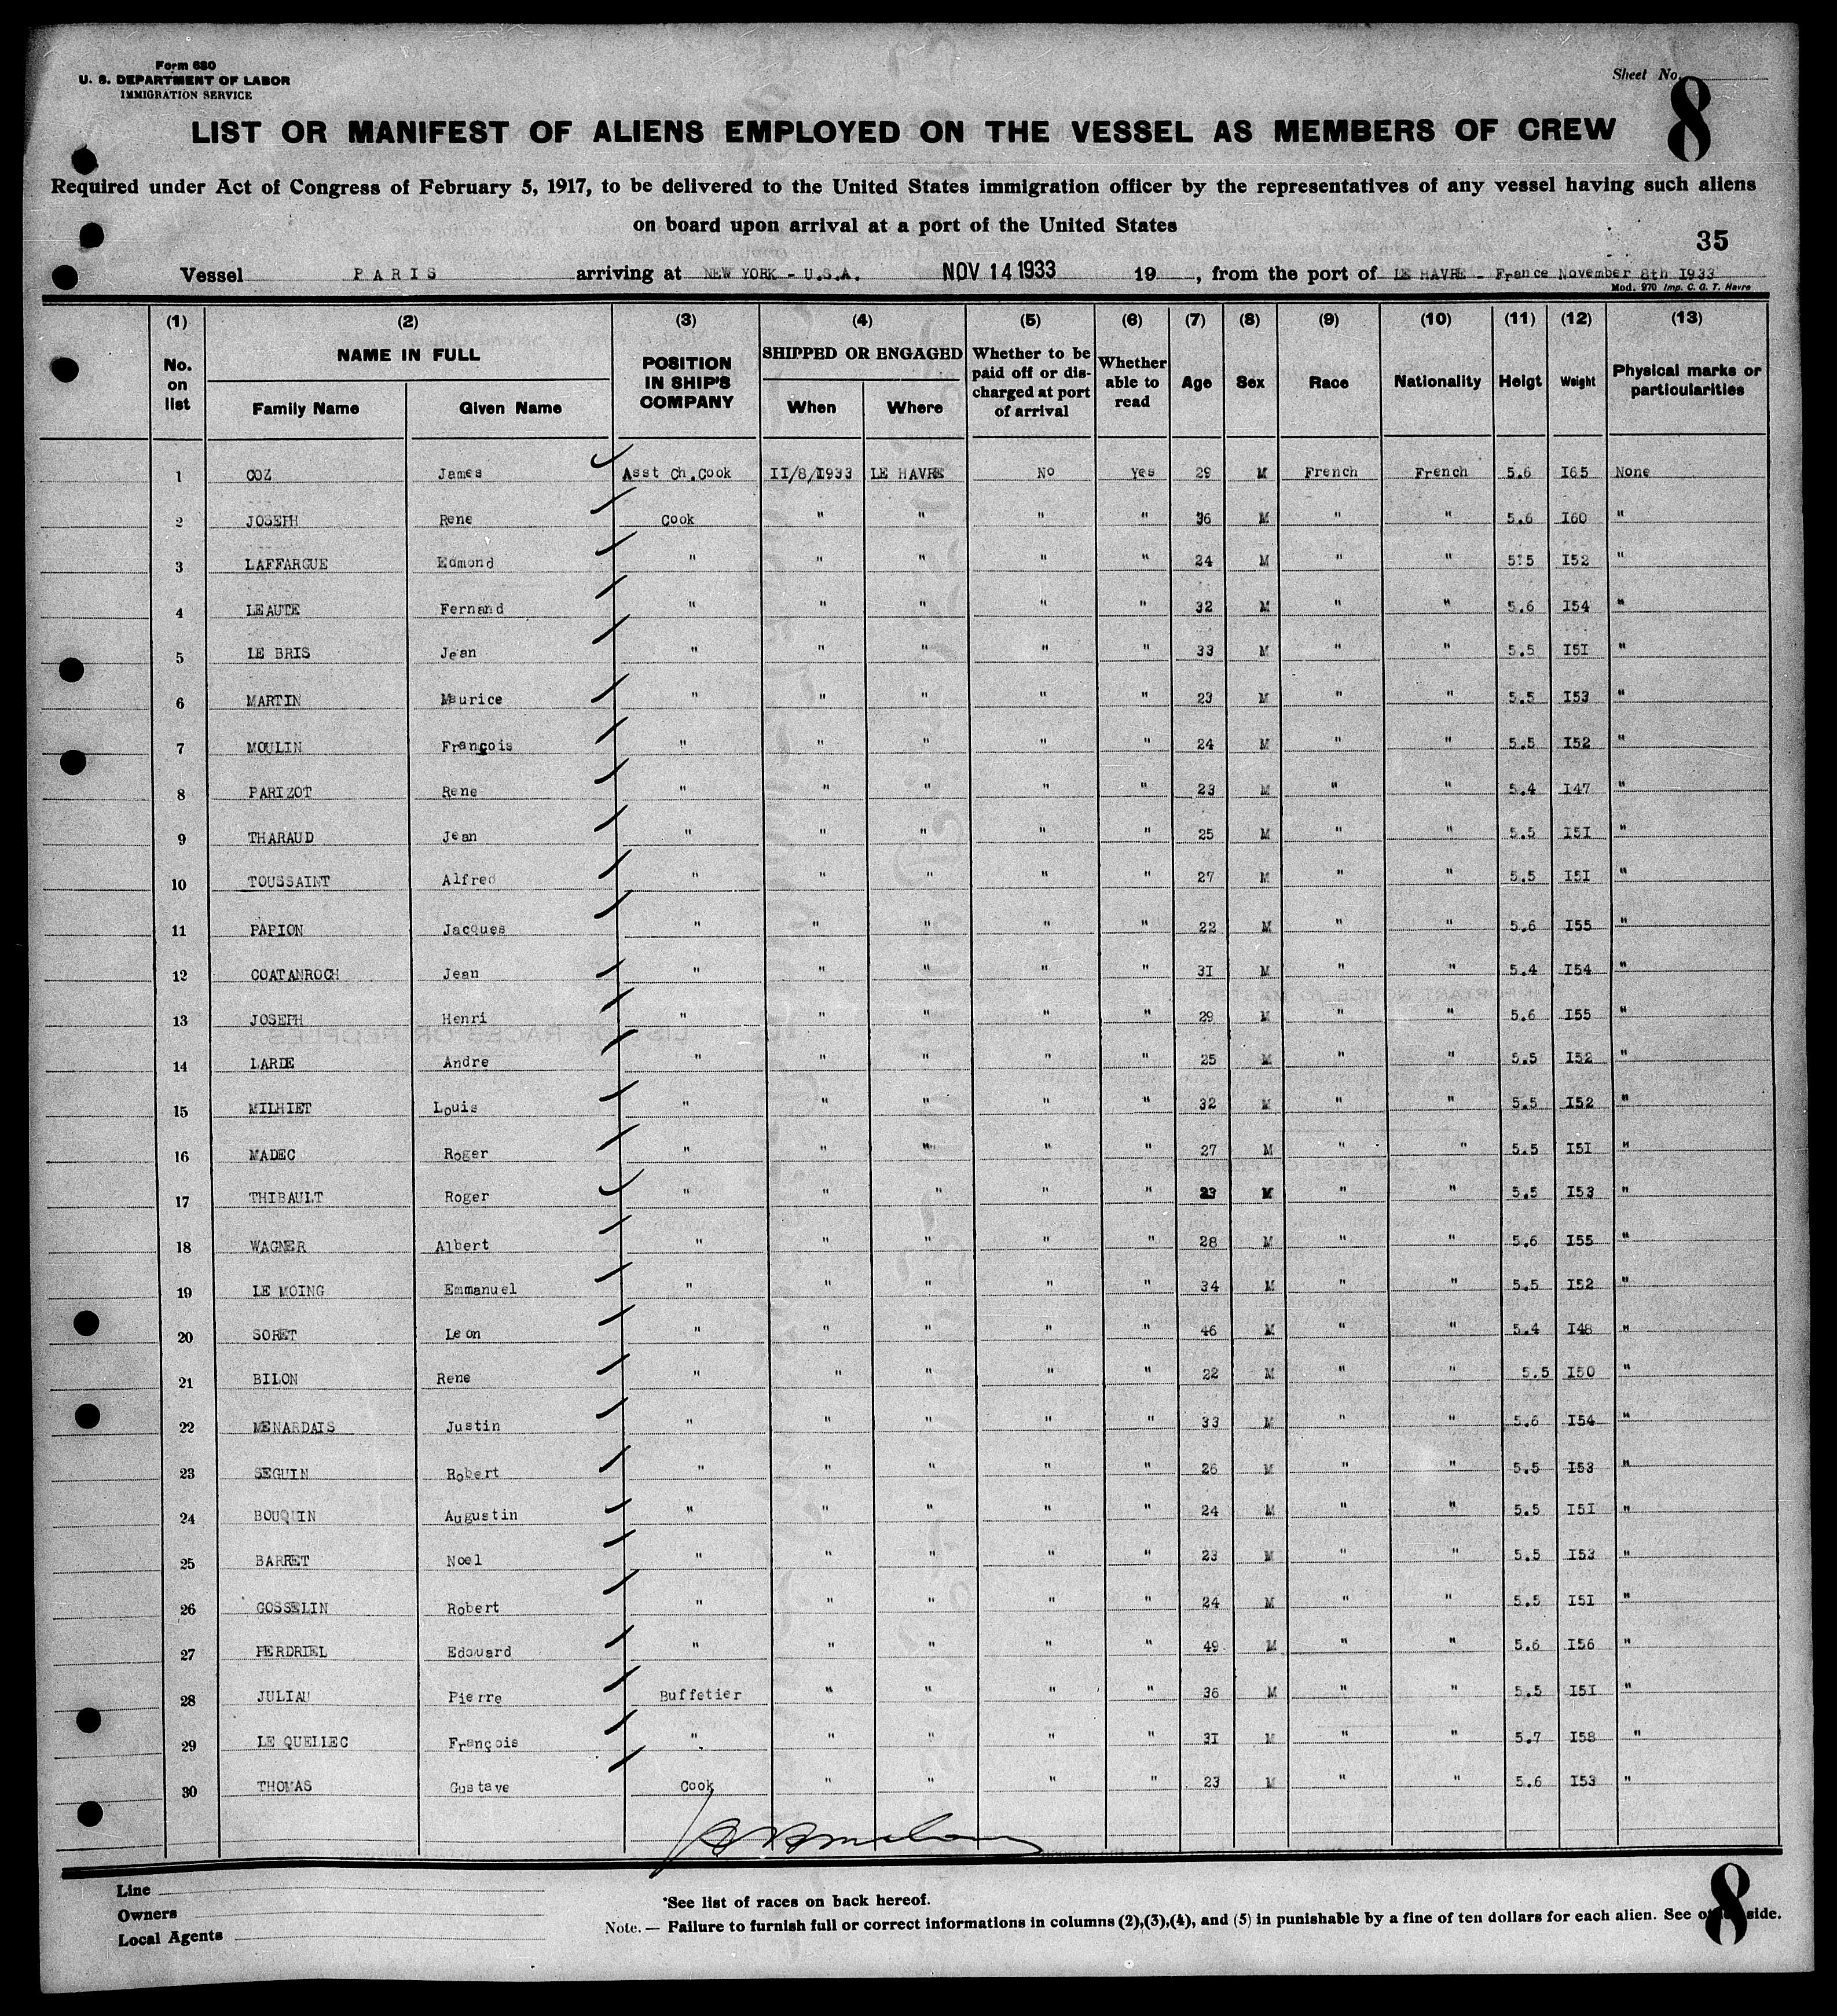 Form 680
U. S. DEPARTMENT OF LABOR
IMMIGRATION SERVICE
Sheet No.
8
LIST OR MANIFEST OF ALIENS EMPLOYED ON THE VESSEL AS MEMBERS OF CREW
Required under Act of Congress of February 5, 1917, to be delivered to the United States immigration officer by the representatives of any vessel having such aliens
on board upon arrival at a port of the United States
35
Vessel PARIS arriving at NEW YORK - U.S.A. NOV 14 1933 19 , from the port of LE HAVRE - France November 8th I933
Mod. 970 Imp. C. G. T. Havre
(1) (2) (3) (4) (5) (6) (7) (8) (9) (10) (11) (12) (13)
No. on list NAME IN FULL Family Name Given Name POSITION IN SHIP'S COMPANY SHIPPED OR ENGAGED When Where Whether to be paid off or discharged at port of arrival Whether able to read Age Sex Race Nationality Heigt Weight Physical marks or particularities
1 COZ James Asst Ch.Cook II/8/I933 LE HAVRE No Yes 29 M French French 5.6 I65 None
2 JOSEPH Rene Cook " " " " 36 M " " 5.6 I60 "
3 LAFFARGUE Edmond " " " " " 24 M " " 5:5 I52 "
4 LEAUTE Fernand " " " " " 32 M " " 5.6 I54 "
5 LE BRIS Jean " " " " " 33 M " " 5.5 I5I "
6 MARTIN Maurice " " " " " 23 M " " 5.5 I53 "
7 MOULIN François " " " " " 24 M " " 5.5 I52 "
8 PARIZOT Rene " " " " " 23 M " " 5.4 I47 "
9 THARAUD Jean " " " " " 25 M " " 5.5 I5I "
10 TOUSSAINT Alfred " " " " " 27 M " " 5.5 I5I "
11 PAPION Jacques " " " " " 22 M " " 5.6 I55 "
12 COATANROCH Jean " " " " " 3I M " " 5.4 I54 "
13 JOSEPH Henri " " " " " 29 M " " 5.6 I55 "
14 LARDE Andre " " " " " 25 M " " 5.5 I52 "
15 MILHIET Louis " " " " " 32 M " " 5.5 I52 "
16 MADEC Roger " " " " " 27 M " " 5.5 I5I "
17 THIBAULT Roger " " " " " 23 M " " 5.5 I53 "
18 WAGNER Albert " " " " " 28 M " " 5.6 I55 "
19 LE MOING Emmanuel " " " " " 34 M " " 5.5 I52 "
20 SORET Leon " " " " " 46 M " " 5.4 I48 "
21 BILON Rene " " " " " 22 M " " 5.5 I50 "
22 MENARDAIS Justin " " " " " 33 M " " 5.6 I54 "
23 SEGUIN Robert " " " " " 26 M " " 5.5 I53 "
24 BOUQUIN Augustin " " " " " 24 M " " 5.5 I5I "
25 BARRET Noel " " " " " 23 M " " 5.5 I53 "
26 GOSSELIN Robert " " " " " 24 M " " 5.5 I5I "
27 PERDRIEL Edouard " " " " " 49 M " " 5.6 I56 "
28 JULIAU Pierre Buffetier " " " " 36 M " " 5.5 I5I "
29 LE QUELLEC François " " " " " 3I M " " 5.7 I58 "
30 THOMAS Gustave Cook " " " " 23 M " " 5.6 I53 "
Line
Owners
Local Agents
*See list of races on back hereof.
Note. — Failure to furnish full or correct informations in columns (2),(3),(4), and (5) in punishable by a fine of ten dollars for each alien. See other side.
8